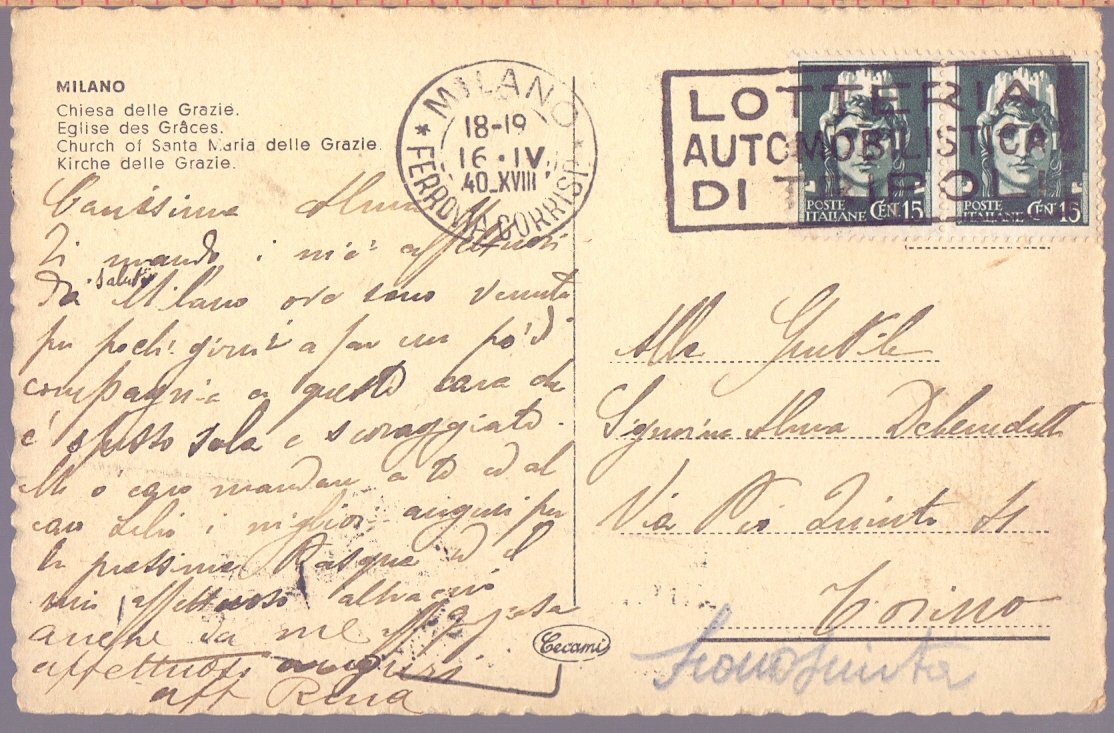 MILANO
Chiesa delle Grazie.
Eglise des Grâces.
Church of Santa Maria delle Grazie.
Kirche delle Grazie.
MILANO
18-19
16·IV
40_XVIII
FERROVIA CORRISP.
LOTTERIA
AUTOMOBILISTICA
DI TRIPOLI
POSTE ITALIANE CENT 15
POSTE ITALIANE CENT 15
Carissima Alma
Ti mando i miei affettuosi
saluti
da Milano ove sono venuta
per pochi giorni a far un po' di
compagnia a questa cara che
è spesso sola e scoraggiata.
Mi è caro mandare a te ed al
caro Lelio i migliori auguri per
la prossima Pasqua ed il
mio affettuoso abbraccio
anche da me
affettuosi auguri
aff Rena
Cecami
Alla Gentile
Signorina Alma Debenedetti
Via Pio Quinto
Torino